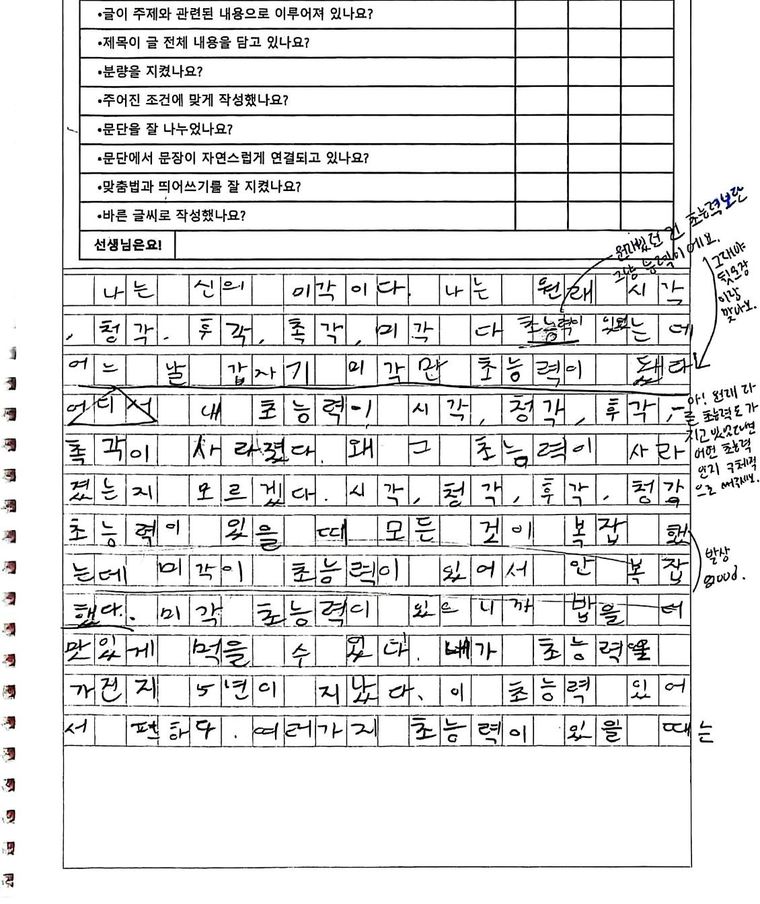 •글이 주제와 관련된 내용으로 이루어져 있나요?
•제목이 글 전체 내용을 담고 있나요?
•분량을 지켰나요?
•주어진 조건에 맞게 작성했나요?
•문단을 잘 나누었나요?
•문단에서 문장이 자연스럽게 연결되고 있나요?
•맞춤법과 띄어쓰기를 잘 지켰나요?
•바른 글씨로 작성했나요?
선생님은요!
원래있던 건 초능력보단
그냥 능력이에요.
그래야
뒷문장
이랑
맞아요.
나는 신의 미각이다. 나는 원래 시각
, 청각, 후각, 촉각, 미각 다 초능력이 있었는데
어느 날 갑자기 미각만 초능력이 됐다
어디서 내 초능력이 시각, 청각, 후각,
촉각이 사라졌다. 왜 그 초능력이 사라
졌는지 모르겠다. 시각, 청각, 후각, 청각
초능력이 있을 때 모든 것이 복잡했
는데 미각이 초능력이 있어서 안 복잡
했다. 미각 초능력이 있으니까 밥을 더
맛있게 먹을 수 있다. 내가 초능력을
가진지 5년이 지났다. 이 초능력 있어
서 편하다. 여러가지 초능력이 있을 때는
아! 원래 다
른 초능력도 가
지고 있었다면
어떤 초능력
인지 구체적
으로 써주세요.
발상
good.